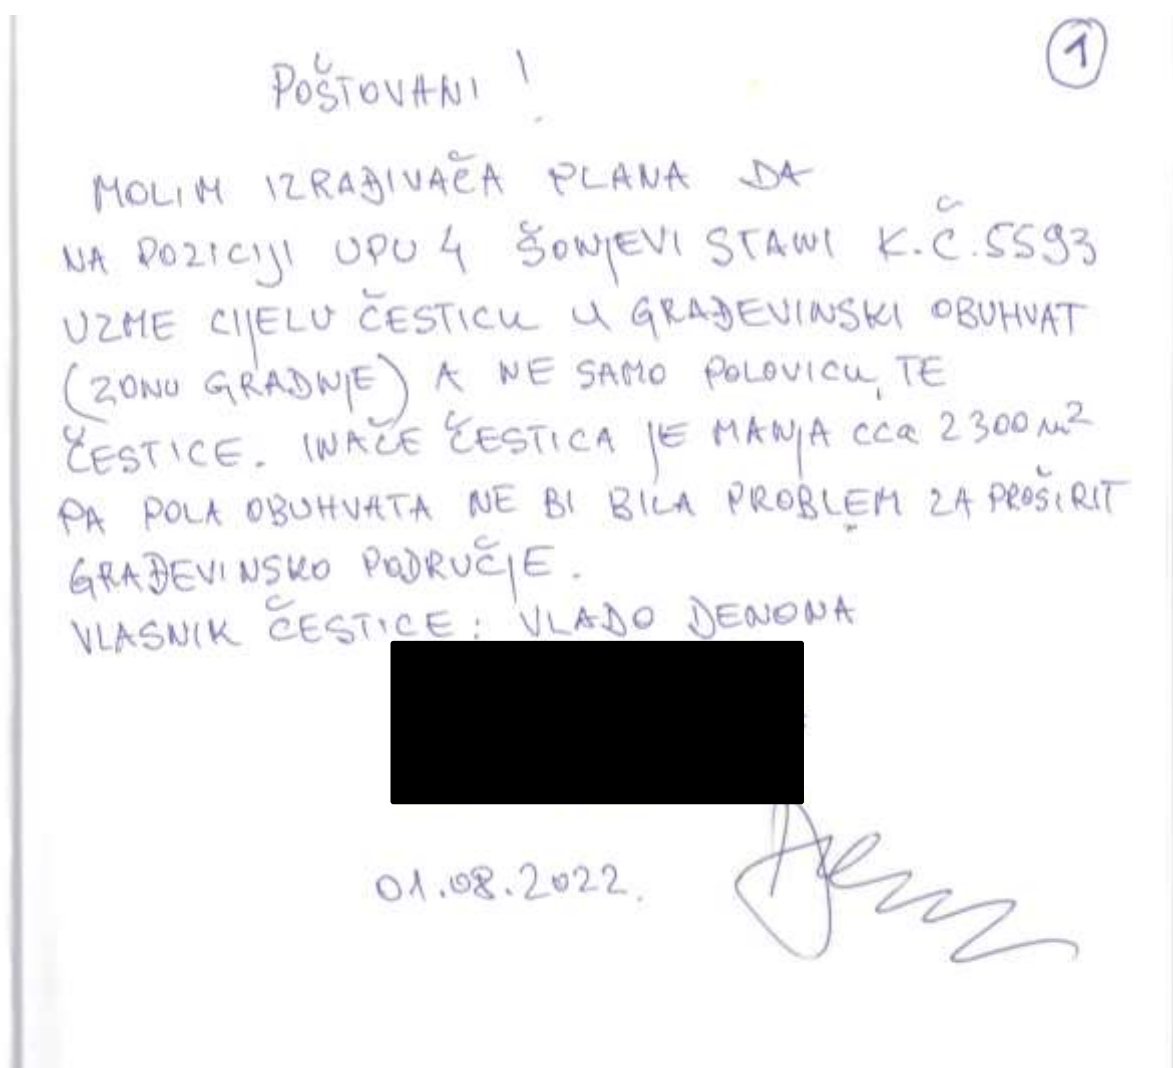 1
POŠTOVANI !
MOLIM IZRAĐIVAČA PLANA DA
NA POZICIJI UPU 4 ŠONJEVI STANI K.Č. 5593
UZME CIJELU ČESTICU U GRAĐEVINSKI OBUHVAT
(ZONU GRADNJE) A NE SAMO POLOVICU TE
ČESTICE. INAČE ČESTICA JE MANJA cca 2300 m²
PA POLA OBUHVATA NE BI BILA PROBLEM ZA PROŠIRIT
GRAĐEVINSKO PODRUČJE.
VLASNIK ČESTICE: VLADO DENONA
01.08.2022.